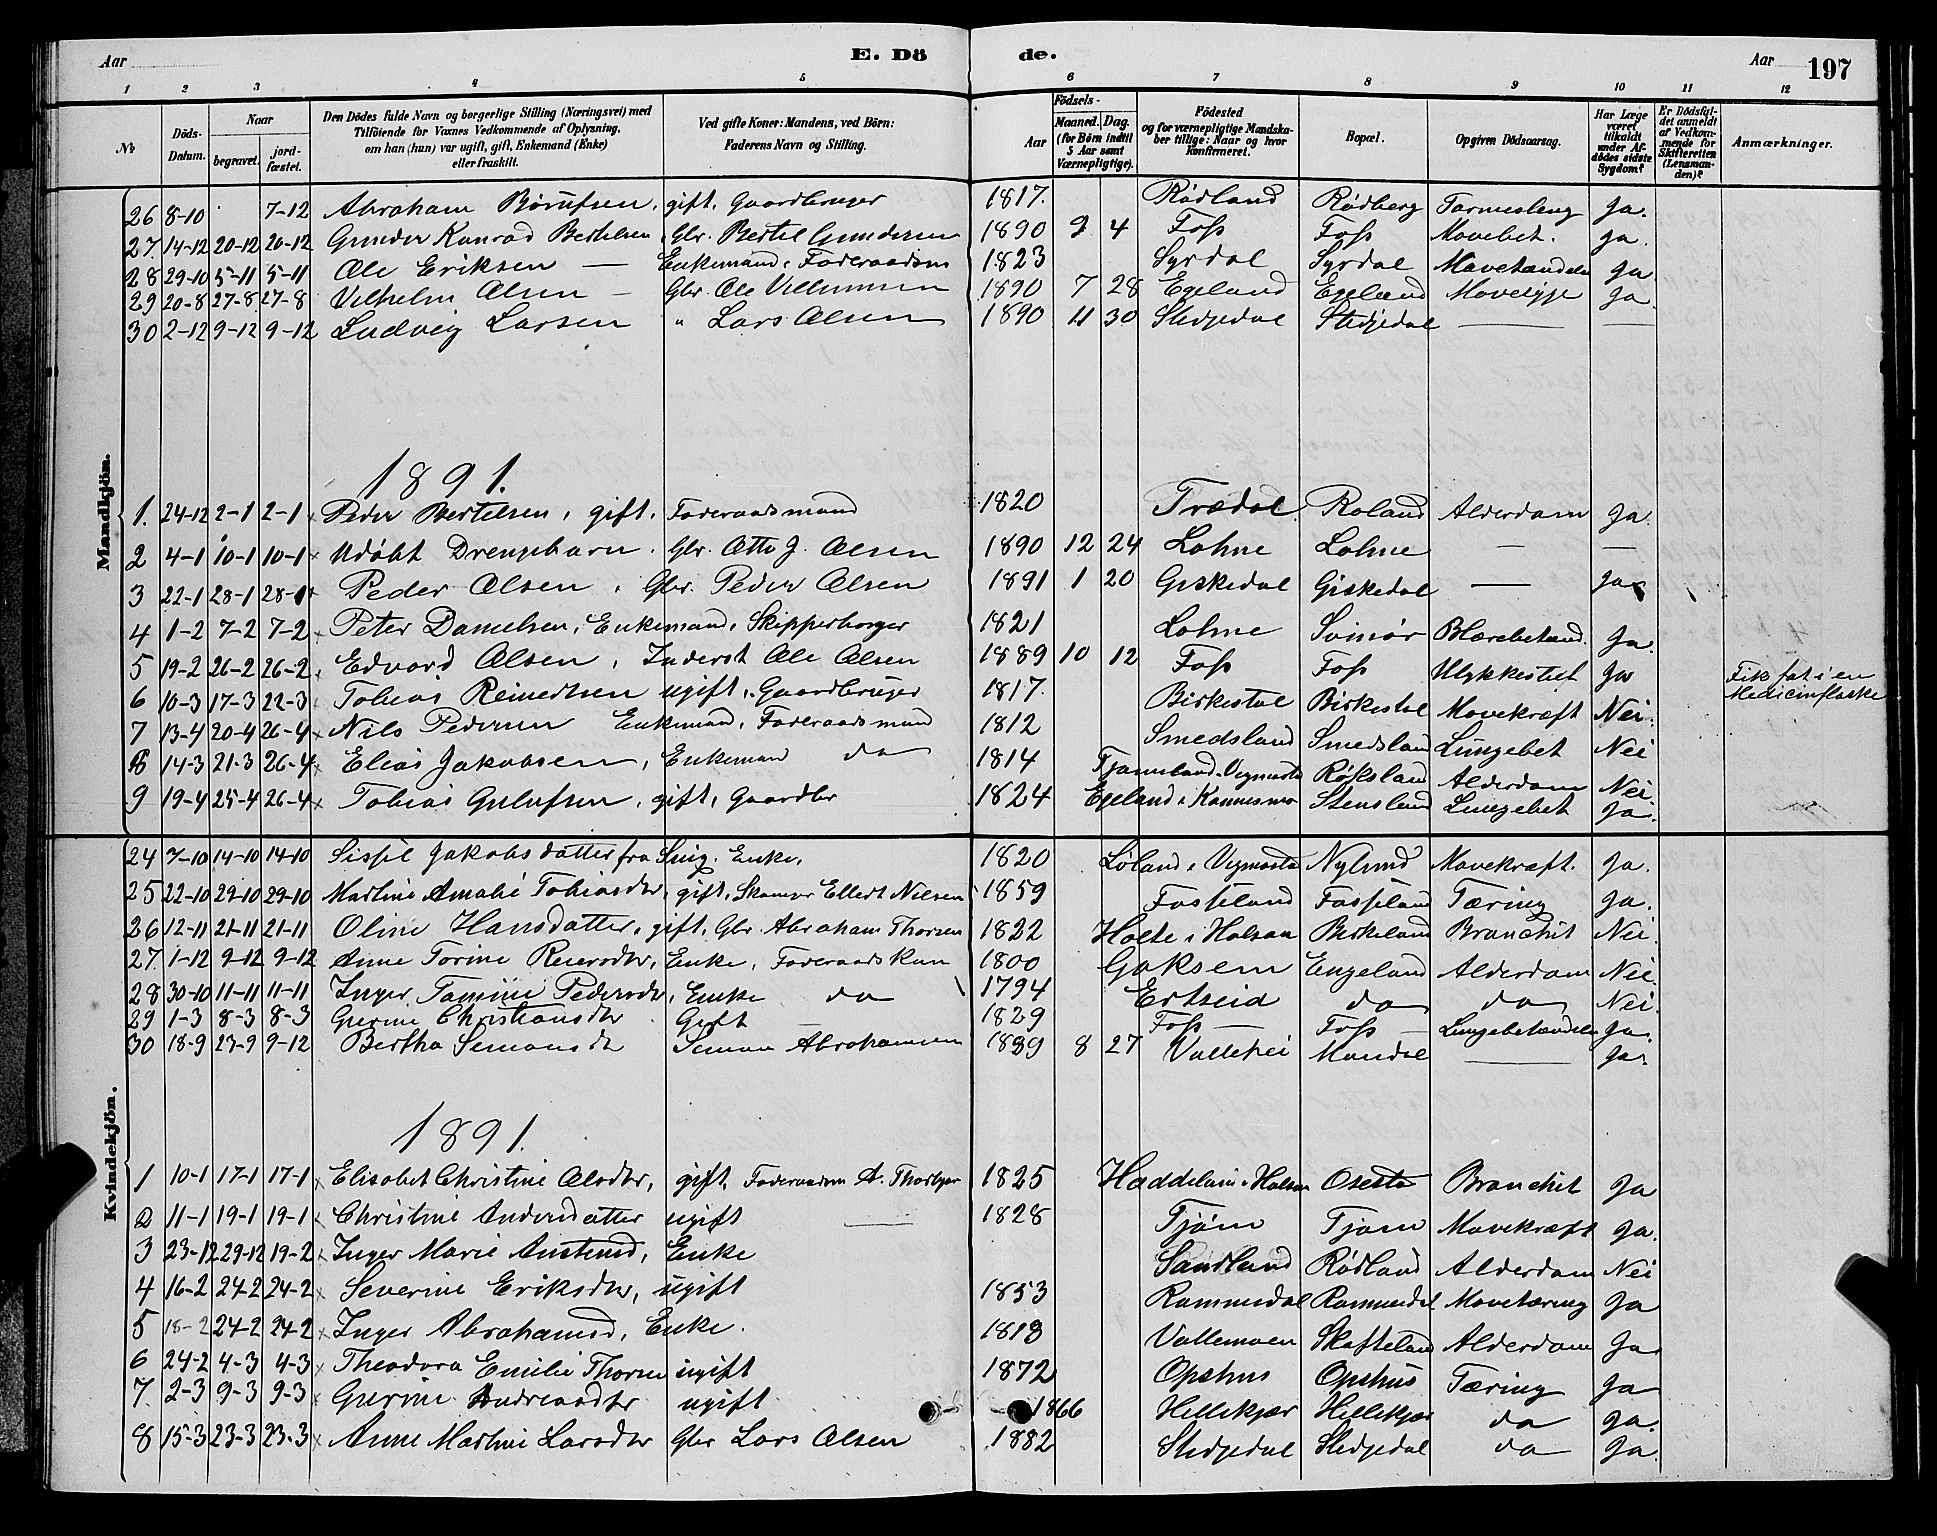 Aar E. Dö de. Aar 197
1 2 3 4 5 6 7 8 9 10 11 12
No. Döds-Datum. Naar begravet. jord-fæstet. Den Dödes fulde Navn og borgerlige Stilling (Næringsvei) med Tilföiende for Voxnes Vedkommende af Oplysning, om han (hun) var ugift, gift, Enkemand (Enke) eller fraskilt. Ved gifte Koner: Mandens, ved Börn: Faderens Navn og Stilling. Födsels- Aar Maaned. Dag. (for Börn indtil 5 Aar samt Værnepligtige). Födested og for værnepligtige Mandskaber tillige: Naar og hvor Konfirmeret. Bopæl. Opgiven Dödsaarsag. Har Læge været tilkaldt under Afdödes sidste Sygdom? Er Dödsfaldet anmeldt af Vedkommende for Skifteretten (Lensmanden)? Anmærkninger.
Mandkjön.
26 8-10 7-12 Abraham Börufsen, gift, Gaardbruger 1817. Rödland Rödberg Ja.
27 14-12 20-12 20-12 Gunder Konrad Bertelsen, Gbr. Bertel Gundersen 1890 9 4 Foss Foss Mavebet. ja.
28 29-10 5-11 5-11 Ole Eriksen — Enkemand, Foderaadsm 1823 Syrdal Syrdal Mavebetændelse Ja
29 20-8 27-8 27-8 Vilhelm Olsen — Gbr. Ole Villumsen 1890 7 28 Egeland Egeland Mavesyge Ja.
30 2-12 9-12 9-12 Ludvig Larsen " Lars Olsen 1890 11 30 Stedjedal Stedjedal — —
1891.
1. 24-12 2-1 2-1 Peder Bertelsen, gift, Foderaadsmand 1820 Trædal Roland Alderdom Ja
2 4-1 10-1 10-1 Udöbt Drengebarn. Gbr. Otto J. Olsen 1890 12 24 Lohne Lohne — —
3 22-1 28-1 28-1 Peder Olsen, Gbr. Peder Olsen 1891 1 20 Giskedal Giskedal — Ja
4 1-2 7-2 7-2 Peter Danielsen, Enkemand, Skipperborger 1821 Lohne Svinör Blærebetænd. Ja.
5 19-2 26-2 26-2 Edvard Olsen, Inderst Ole Olsen 1889 10 12 Foss Foss Ulykkestilf Ja Fik fat i en Medicinflaske
6 10-3 17-3 22-3 Tobias Reinertsen ugift, Gaardbruger 1817. Birkestol Birkestol Mavekræft Nei.
7 13-4 20-4 26-4 Nils Pedersen Enkemand, Foderaadsmand 1812 Smedsland Smedsland Lungebet Nei
8 14-3 21-3 26-4 Elias Jakobsen, Enkemand do 1814 Röksland Alderdom Nei.
9 19-4 25-4 26-4 Tobias Gulufsen, gift, Gaardbr 1824 Egeland i Stensland Lungebet Ja.
Kvindekjön.
24 7-10 14-10 14-10 Sissel Jakobsdatter fra Enke. 1820 Löland i Vigmostad Nylund Mavekræft. Ja.
25 22-10 29-10 29-10 Martine Amalie Tobiasdtr, gift, Skomr Ellert Nielsen 1859 Fasseland Fasseland Tæring Ja.
26 12-11 21-11 21-11 Oline Hansdatter, gift, Gbr. Abraham Thorsen 1822 Holte i Birkeland Bronchit Nei
27 1-12 9-12 9-12 Anne Torine Reiersdtr, Enke, Foderaadskon 1800 Goksem Engeland Alderdom Nei
28 30-10 11-11 11-11 Inger Pedersdtr, Enke do 1794 Ertseid do do Nei.
29 1-3 8-3 8-3 Gurine Christiansdtr Gift — 1829 Foss — Foss — Lungebetændelse Ja.
30 18-9 23-9 9-12 Bertha Simonsdtr Simon Abrahamsen 1889 8 27 Vallehei Mandal — Ja.
1891.
1 10-1 17-1 17-1 Elisabet Christine Olsdtr, gift, Foderaadsm A. 1825 Osestad Bronchit Ja
2 11-1 19-1 19-1 Christine Andersdatter ugift — 1828 Tjöm Tjöm Mavekræft Ja.
3 23-12 29-12 19-2 Inger Marie Austensd, Enke Sandland Rödland Alderdom Nei
4 16-2 24-2 24-2 Severine Eriksdtr, ugift 1853 Rammesdal Rammesdal Mavetæring Ja
5 18-2 24-2 24-2 Inger Abrahamsd, Enke. 1813 Vallemoen Skofteland Alderdom Ja
6 24-2 4-3 4-3 Theodora Emilie Thorsen ugift 1872 Opshus Opshus Tæring Ja
7. 2-3 9-3 9-3 Gurine Andreasdtr ugift 1866 Hellekjær Hellekjær do Ja.
8 15-3 23-3 23-3 Anne Martine Larsdtr Gbr Lars Olsen 1882 Stedjedal Stedjedal do Ja.